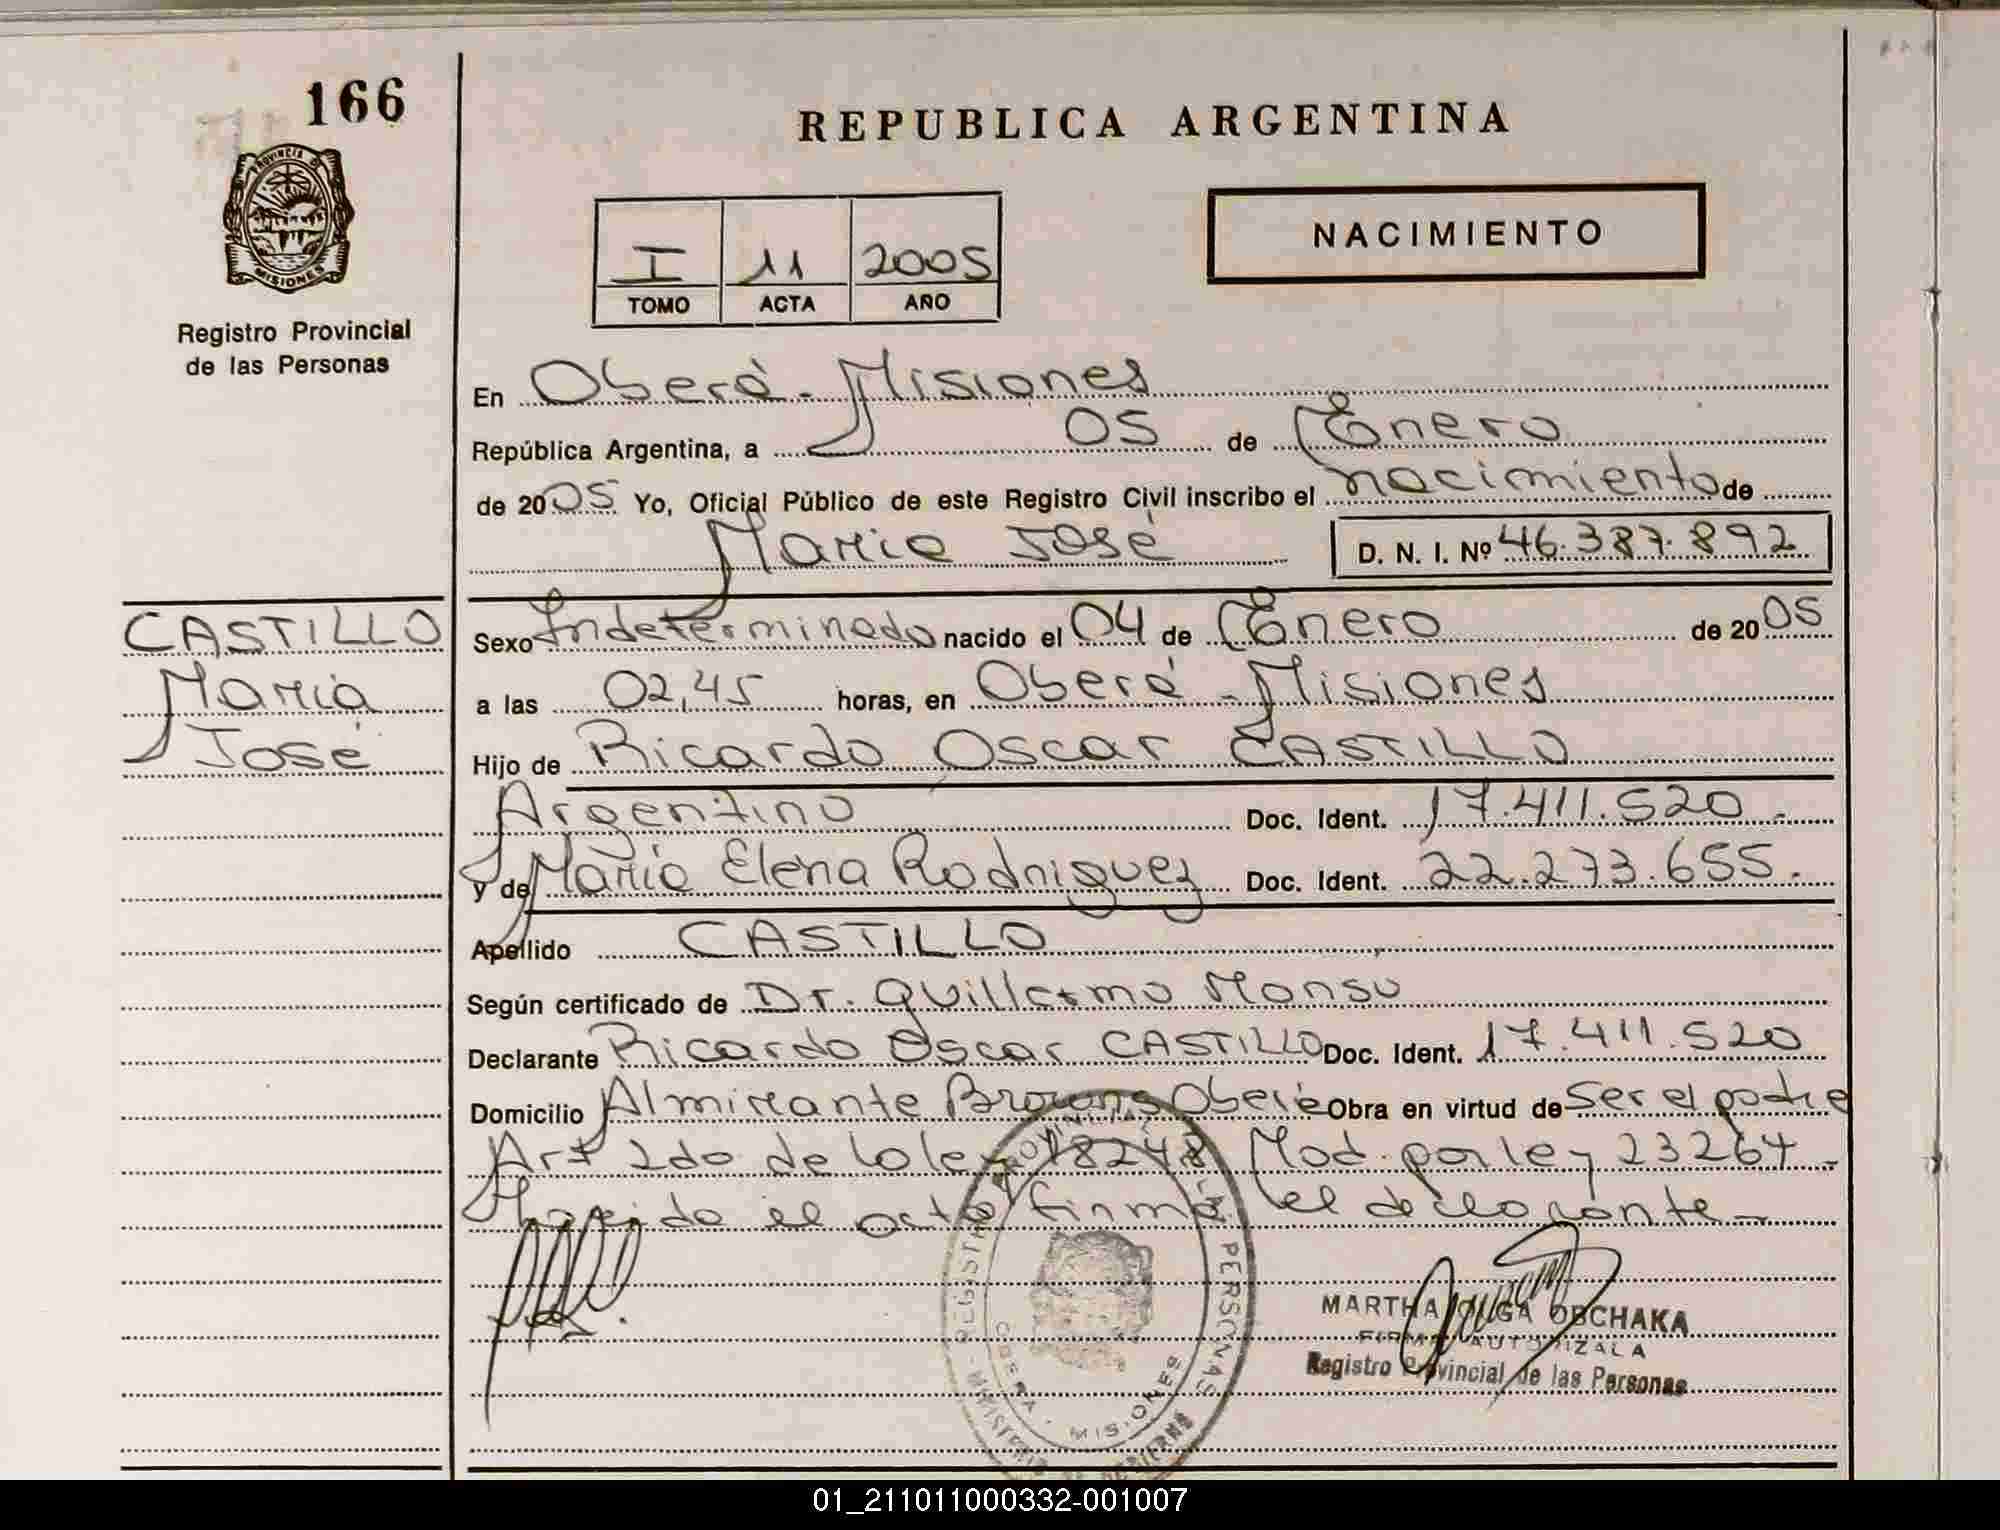 166
PROVINCIA DE
MISIONES
Registro Provincial
de las Personas
CASTILLO
Maria
José
REPUBLICA ARGENTINA
I 11 2005
TOMO ACTA AÑO
NACIMIENTO
En Oberá - Misiones
República Argentina, a 05 de Enero
de 2005 Yo, Oficial Público de este Registro Civil inscribo el nacimiento de
Maria José D. N. I. Nº 46.387.892
Sexo Indeterminado nacido el 04 de Enero de 2005
a las 02,45 horas, en Oberá - Misiones
Hijo de Ricardo Oscar CASTILLO
Argentino Doc. Ident. 17.411.520.-
y de Maria Elena Rodriguez Doc. Ident. 22.273.655.-
Apellido CASTILLO
Según certificado de Dr. Guillermo Monsu
Declarante Ricardo Oscar CASTILLO Doc. Ident. 17.411.520
Domicilio Almirante Brown Oberá Obra en virtud de Ser el padre
Art 2do de la ley 18248 Mod. por ley 23264 -
el acta firma el declarante -
MARTHA OLGA OBCHAKA
FIRMA AUTORIZADA
Registro Provincial de las Personas
REGISTRO PROVINCIAL DE LAS PERSONAS
OBERA - MISIONES
MINISTERIO DE GOBIERNO
01_211011000332-001007